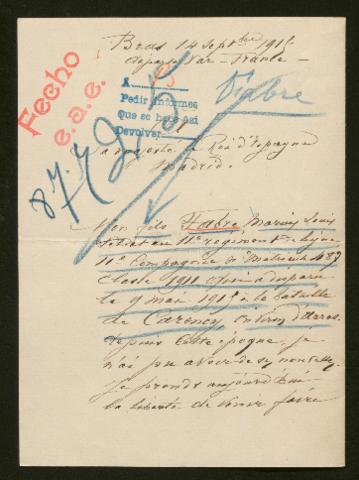 Bras 14 Septbre 1915
départ Var - France -
Fecho
e.a.e.
A
Pedir informes
Que se hace así
Devolver
Fabre
a majesté le Roi d'Espagne
Madrid.
Mon fils Fabre, Marius Louis
soldat au 11e regiment de ligne
11e Compagnie, No Matricule 487
classe 1911 disparu
le 9 mai 1915 à la bataille
de Carency, environ d'Arras.
depuis cette époque je
n'ai pu avoir de ses nouvelles.
Je prends aujourd'hui
la liberté de venir